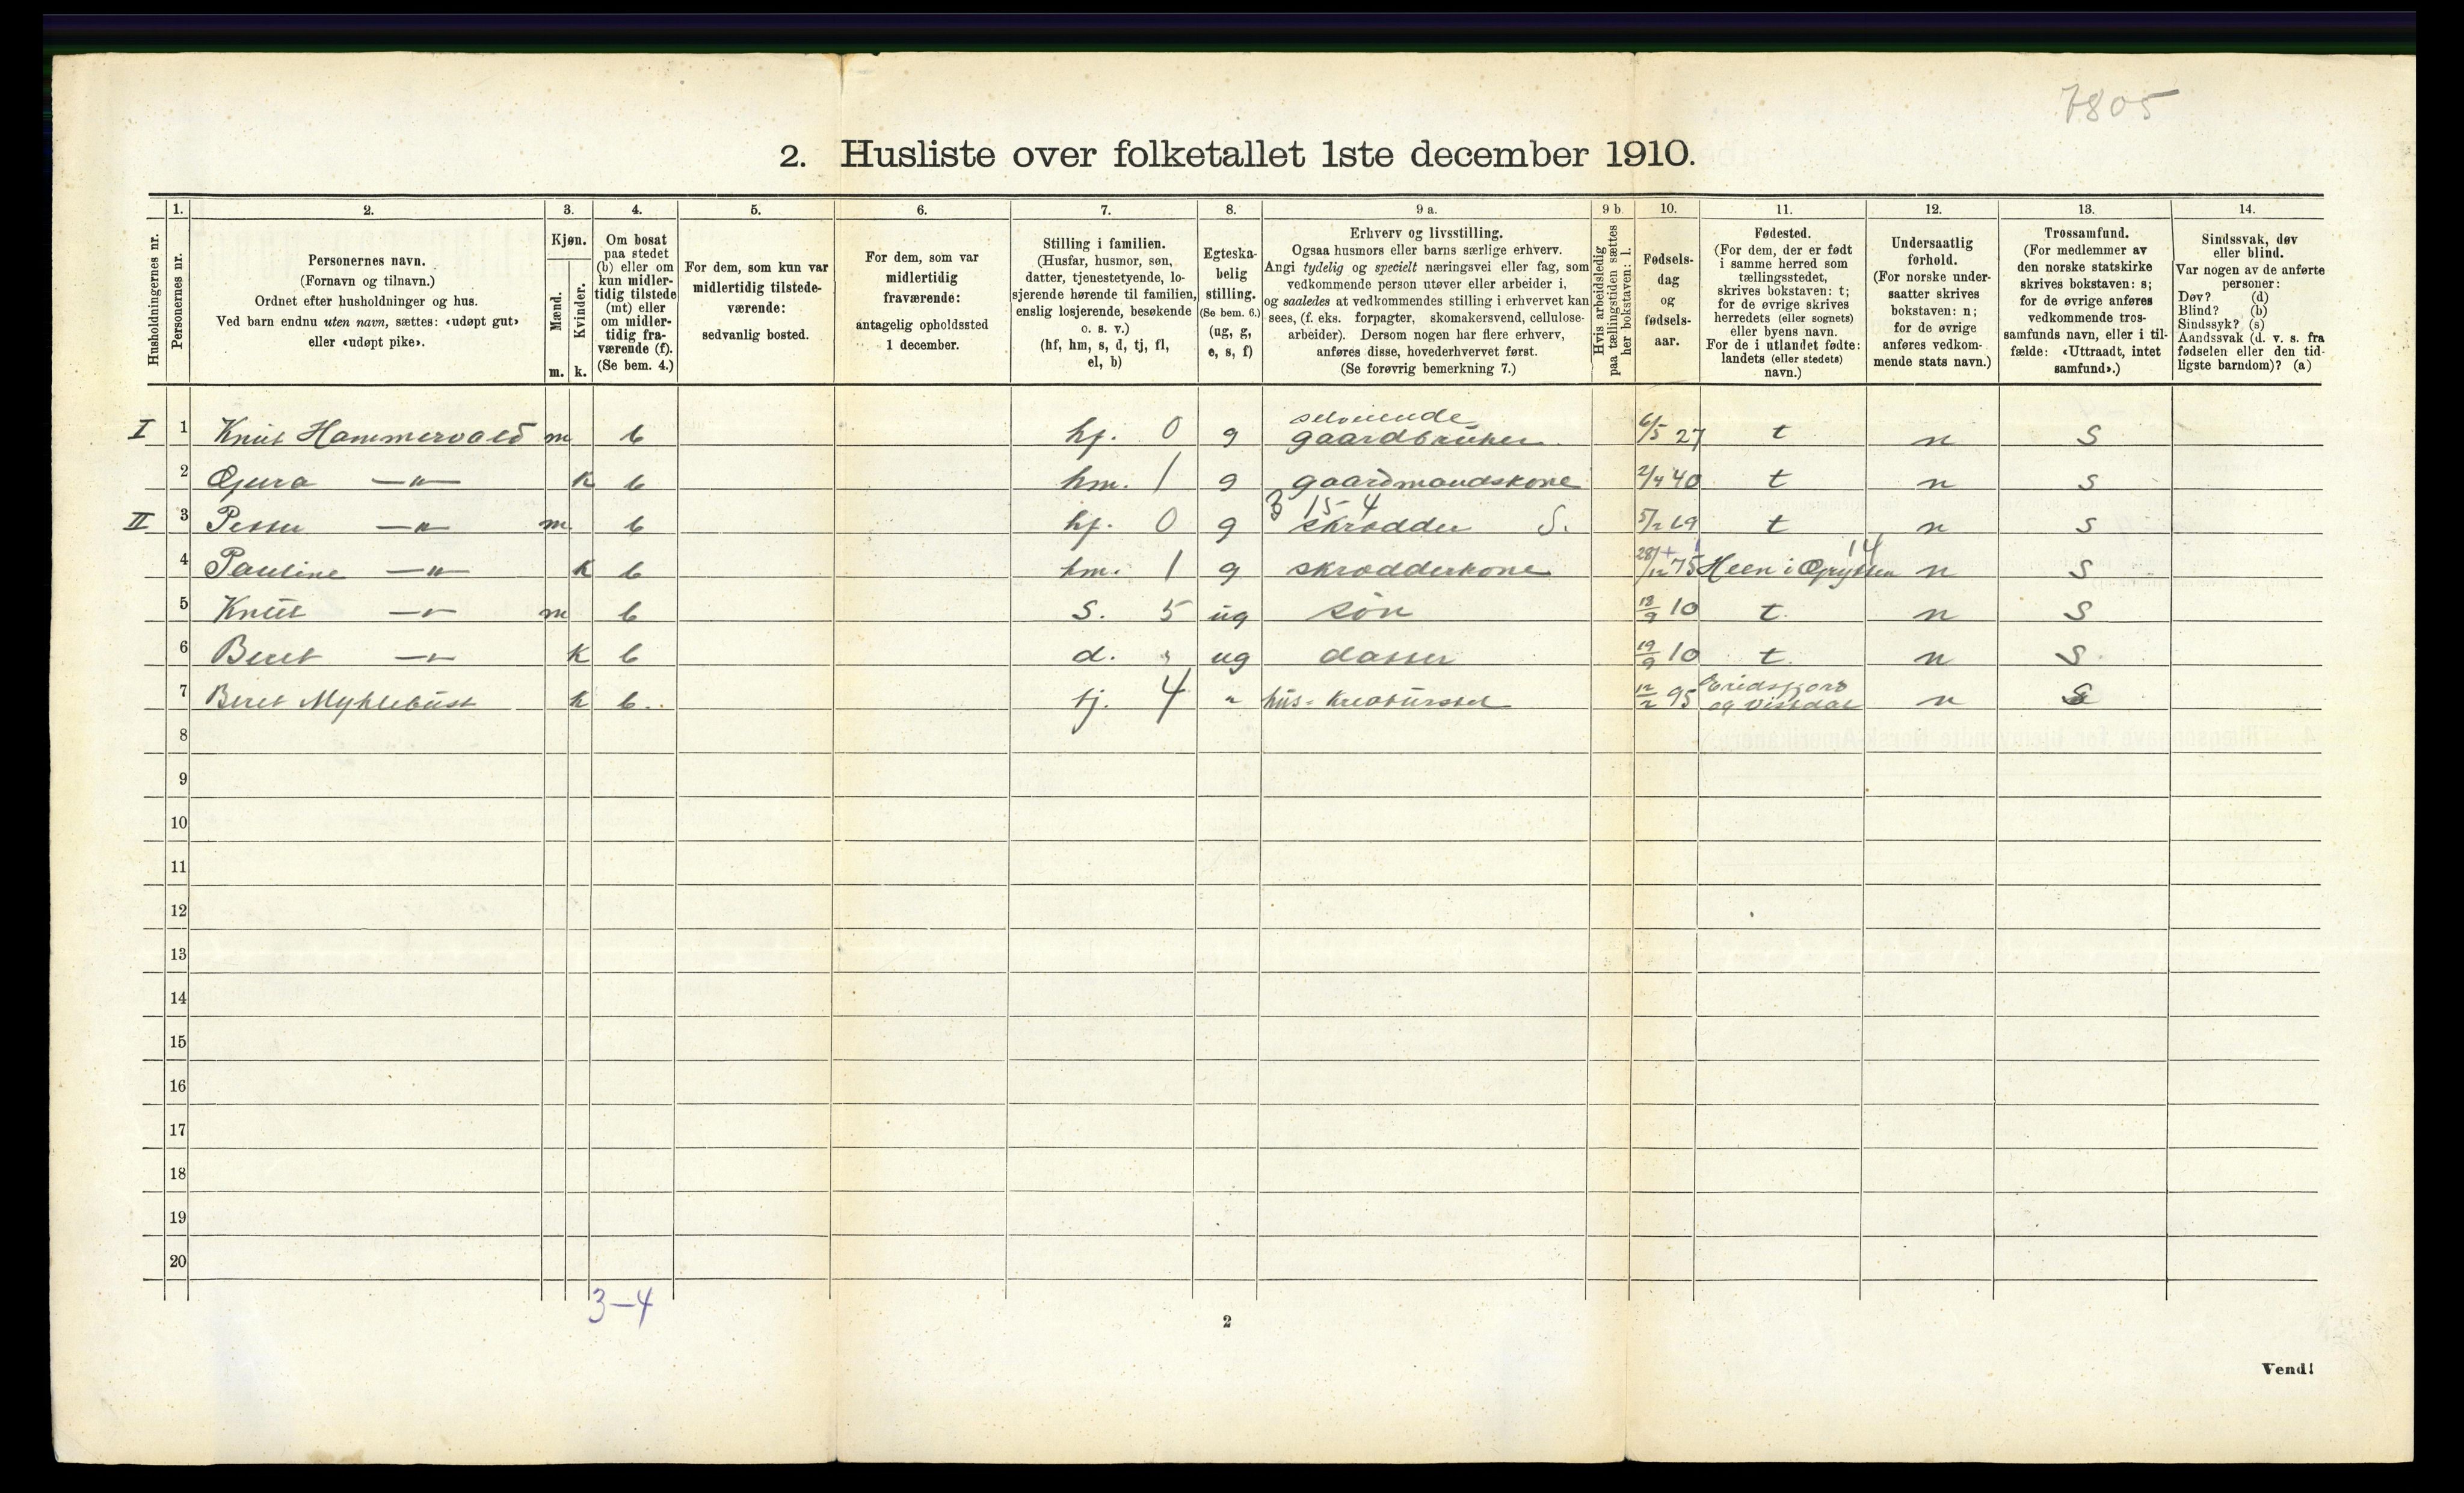 7805
2. Husliste over folketallet 1ste december 1910.
Husholdningernes nr.
1.
Personernes nr.
2.
Personernes navn.
(Fornavn og tilnavn.)
Ordnet efter husholdninger og hus.
Ved barn endnu uten navn, sættes: «udøpt gut»
eller «udøpt pike».
3.
Kjøn.
Mænd.
Kvinder.
m. k.
4.
Om bosat
paa stedet
(b) eller om
kun midler-
tidig tilstede
(mt) eller
om midler-
tidig fra-
værende (f).
(Se bem. 4.)
5.
For dem, som kun var
midlertidig tilstede-
værende:
sedvanlig bosted.
6.
For dem, som var
midlertidig
fraværende:
antagelig opholdssted
1 december.
7.
Stilling i familien.
(Husfar, husmor, søn,
datter, tjenestetyende, lo-
sjerende hørende til familien,
enslig losjerende, besøkende
o. s. v.)
(hf, hm, s, d, tj, fl,
el, b)
8.
Egteska-
belig
stilling.
(Se bem. 6.)
(ug, g,
e, s, f)
9 a.
Erhverv og livsstilling.
Ogsaa husmors eller barns særlige erhverv.
Angi tydelig og specielt næringsvei eller fag, som
vedkommende person utøver eller arbeider i,
og saaledes at vedkommendes stilling i erhvervet kan
sees, (f. eks. forpagter, skomakersvend, cellulose-
arbeider). Dersom nogen har flere erhverv,
anføres disse, hovederhvervet først.
(Se forøvrig bemerkning 7.)
9 b.
Hvis arbeidsledig
paa tællingstiden sættes
her bokstaven: l.
10.
Fødsels-
dag
og
fødsels-
aar.
11.
Fødested.
(For dem, der er født
i samme herred som
tællingsstedet,
skrives bokstaven: t;
for de øvrige skrives
herredets (eller sognets)
eller byens navn.
For de i utlandet fødte:
landets (eller stedets)
navn.)
12.
Undersaatlig
forhold.
(For norske under-
saatter skrives
bokstaven: n;
for de øvrige
anføres vedkom-
mende stats navn.)
13.
Trossamfund.
(For medlemmer av
den norske statskirke
skrives bokstaven: s;
for de øvrige anføres
vedkommende tros-
samfunds navn, eller i til-
fælde: «Uttraadt, intet
samfund».)
14.
Sindssvak, døv
eller blind.
Var nogen av de anførte
personer:
Døv? (d)
Blind? (b)
Sindssyk? (s)
Aandssvak (d. v. s. fra
fødselen eller den tid-
ligste barndom)? (a)
selveiende
I 1 Knut Hammervold m b hf. 0 g gaardbruker 6/5 27 t n S
2 Gjura —"— k b hm. 1 g gaardmandskone 2/4 40 t n s
3 15-4
II 3 Petter —"— m b hf. 0 g skrædder S. 5/2 69 t n s
14
4 Pauline —"— k b hm. 1 g skrædderkone 28/12 75 Heen i Gryttten n S
5 Knut —"— m b S. 5 ug søn 18/9 10 t n S
6 Beret —"— k b d. " ug datter 19/9 10 t n S
7 Beret Myklebust k b tj. 4 " hus-kreaturstel 12/2 95 Eridsfjord
og Vistdal n S
8
9
10
11
12
13
14
15
16
17
18
19
20
3-4
2
Vend!